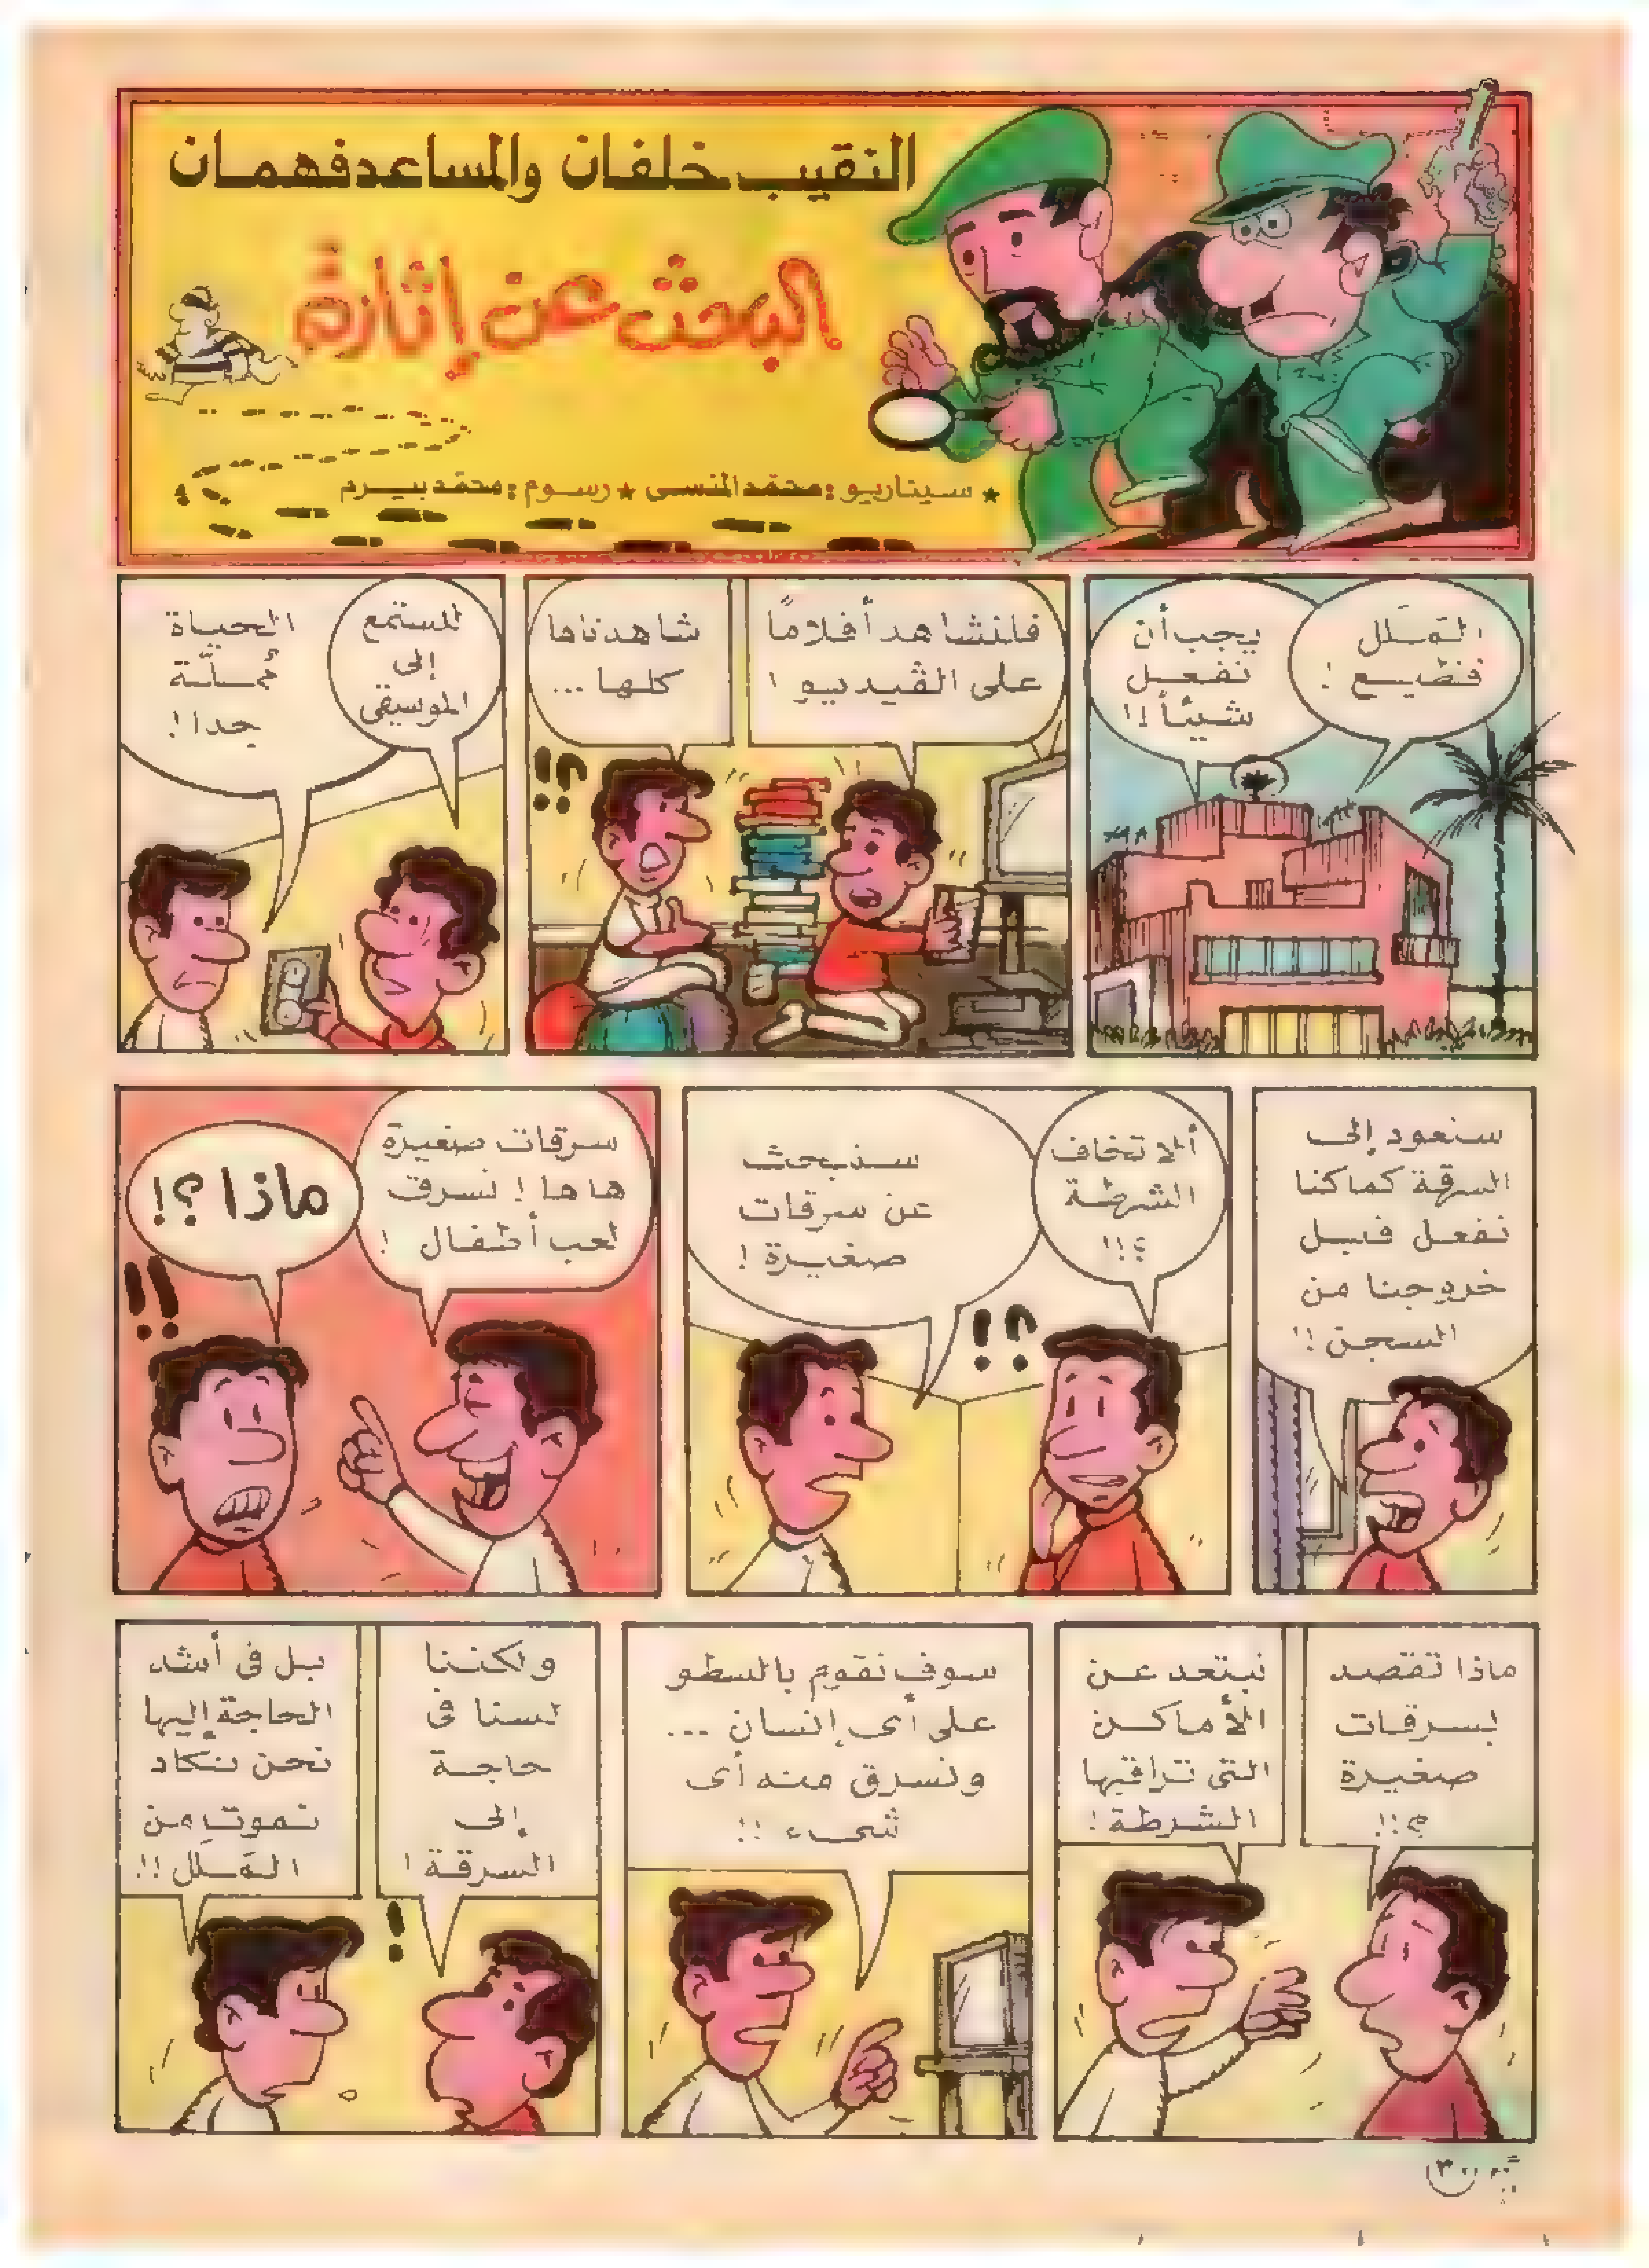 النقيب خلفان والمساعد فهمان
البحث عن إثارة
★ سيناريو : محمد المنسى ★ رسوم : محمد بيرم
المَلل
فظيع !
يجب أن
نفعل
شيئاً !!
فلنشاهد أفلامًا
على الڤيديو !
شاهدناها
كلها ...
!؟
لنستمع
إلى
الموسيقى
الحياة
مُملّة
جدا !
سنعود إلى
السرقة كما كنا
نفعل قبل
خروجنا من
السجن !!
ألا تخاف
الشرطة
؟!!
سنبحث
عن سرقات
صغيرة !
!؟
سرقات صغيرة
ها ها ! نسرق
لعب أطفال !
ماذا ؟!
!!
ماذا تقصد
بسرقات
صغيرة
؟!!
نبتعد عن
الأماكن
التى تراقبها
الشرطة !
سوف نقوم بالسطو
على أى إنسان ...
ونسرق منه أى
شىء !!
ولكننا
لسنا فى
حاجة
إلى
السرقة !
بل فى أشد
الحاجة إليها
نحن نكاد
نموت من
المَلل !!
!